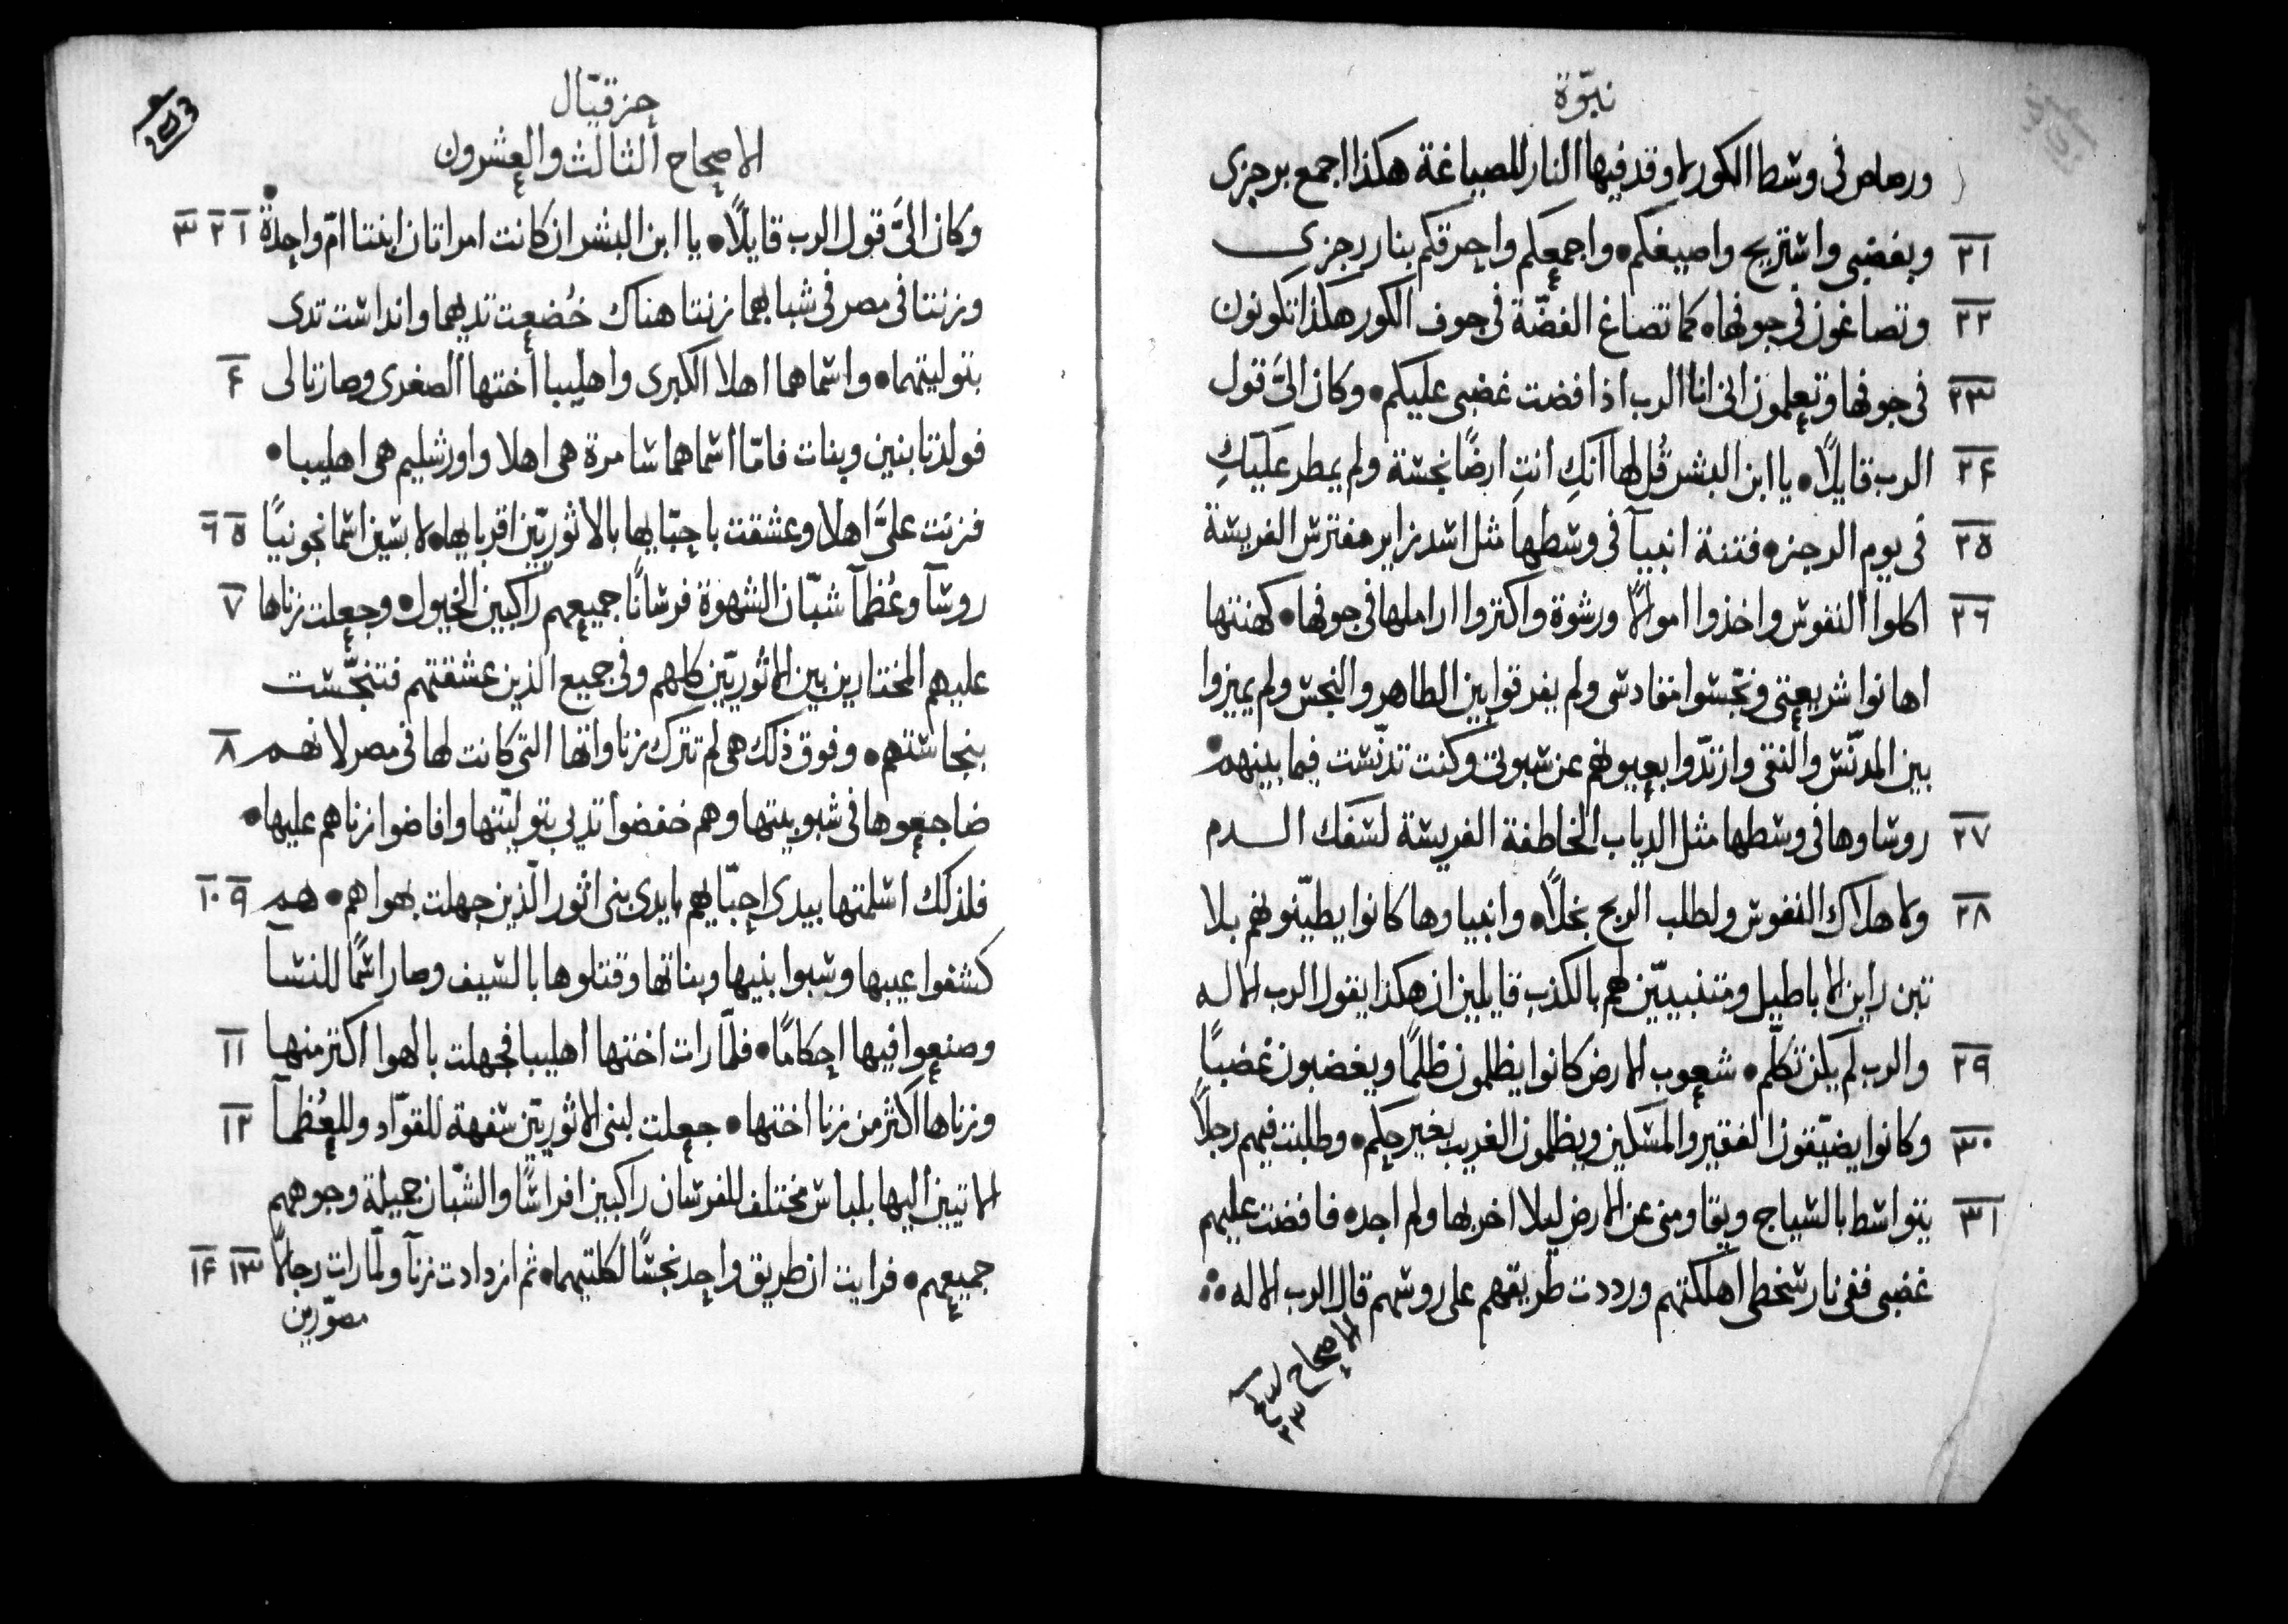 نبوّة
ورصاص فى وسط الكور لاوقد فيها النار للصياغة هكذا اجمع برجزى
٢١ وبغضبى واستريح واصيغكم • واجمعكم واحرقكم بنار رجزى
٢٢ وتصاغون فى جوفها • كما تصاغ الفضّة فى جوف الكور هكذا تكونون
٢٣ فى جوفها وتعلمون انى انا الرب اذا افضت غضبى عليكم • وكان الىَّ قول
٢٤ الرب قايلاً • يا ابن البشر قُل لها انكِ انتِ ارضًا نجسة ولم يمطر عليكِ
٢٥ فى يوم الرجز • فتنة انبيآ فى وسطها مثل اسد زاير مفترس الفريسة
٢٦ اكلوا النفوس واخذوا اموالاً ورشوة واكتروا اراملها فى جوفها • كهنتها
اهانوا شريعتى ونجّسوا مقادسى ولم يفرقوا بين الطاهر والنجس ولم يميزوا
بين المدنّس والنقى وارتدّوا بعيونهم عن سبوتى وكنت تدنّست فيما بينهم •
٢٧ روساوها فى وسطها مثل الدياب الخاطفة الفريسة لسفك الدم
٢٨ ولاهلاك النفوس ولطلب الربح بخلاً • وانبياوها كانوا يطيّنونهم بلا
تبن رايين الاباطيل ومتنبييّن لهم بالكذب قايلين ان هكذا يقول الرب الاله
٢٩ والرب لم يكن تكلّم • شعوب الارض كانوا يظلمون ظلمًا ويغضبون غضبًا
٣٠ وكانوا يضيّقون الفقير والمسكين ويظلمون الغريب بغير حكم • وطلبت فيهم رجلاً
٣١ يتواسط بالسياج ويقاومنى عن الارض ليلا اخربها ولم اجده فافضت عليهم
غضبى ففى نار سخطى اهلكتهم ورددت طريقهم على روسهم قال الرب الاله
الاصحاح
٢٣
حزقيّال
الاصحاح الثالث والعشرون
وكان الىَّ قول الرب قايلاً • يا ابن البشر ان كانت امراتان ابنتا امّ واحدة • ١ ٢ ٣
وزنتا فى مصر فى شبابهما زنتا هناك خُضعت تديهما وانداست تدى
بتوليتهما • واسماهما اهلا الكبرى واهليبا أختها الصغرى وصارتا لى ٤
فولدتا بنين وبنات فامّا اسماهما سامرة هى اهلا واورشليم هى اهليبا •
فزنت علىَّ اهلا وعشقت باحبّايها بالاثوريّين اقربايها • لابسين اسمانجونيًا ٥ ٦
روسآ وعُظمآ شبّان الشهوة فرسانًا جميعهم راكبين الخيول • وجعلت زناها ٧
عليهم المختارين بين الاثوريّين كلهم وفى جميع الذين عشقتهم فتنجّست
بنجاستهم • وفوق ذلك هى لم تترك زناواتها التى كانت لها فى مصر لانهم ٨
ضاجعوها فى شبوبيتها وهم خفضوا تدبى بتوليّتها وافاضوا زناهم عليها •
فلذلك اسلمتها بيدى احبّايهم بايدى بنى اثور الّذين جهلت بهواهم • هم ٩ ١٠
كشفوا عيبها وسبوا بنيها وبناتها وقتلوها بالسيف وصار اسمًا للنسآ
وصنعوا فيها احكامًا • فلمّا رات اختها اهليبا فجهلت بالهوا اكتر منها ١١
وزناها اكثر من زنا اختها • جعلت لبنى الاثوريّين سفهة للقوّاد وللعُظمآ ١٢
الاتيين اليها بلباس مختلف للفرسان راكبين افراسًا والشبّان جميلة وجوههم
جميعهم • فرايت ان طريق واحد نجسًا لكلتيهما • ثم ازدادت زنآ ولمّا رات رجالاً ١٣ ١٤
مصوّرين